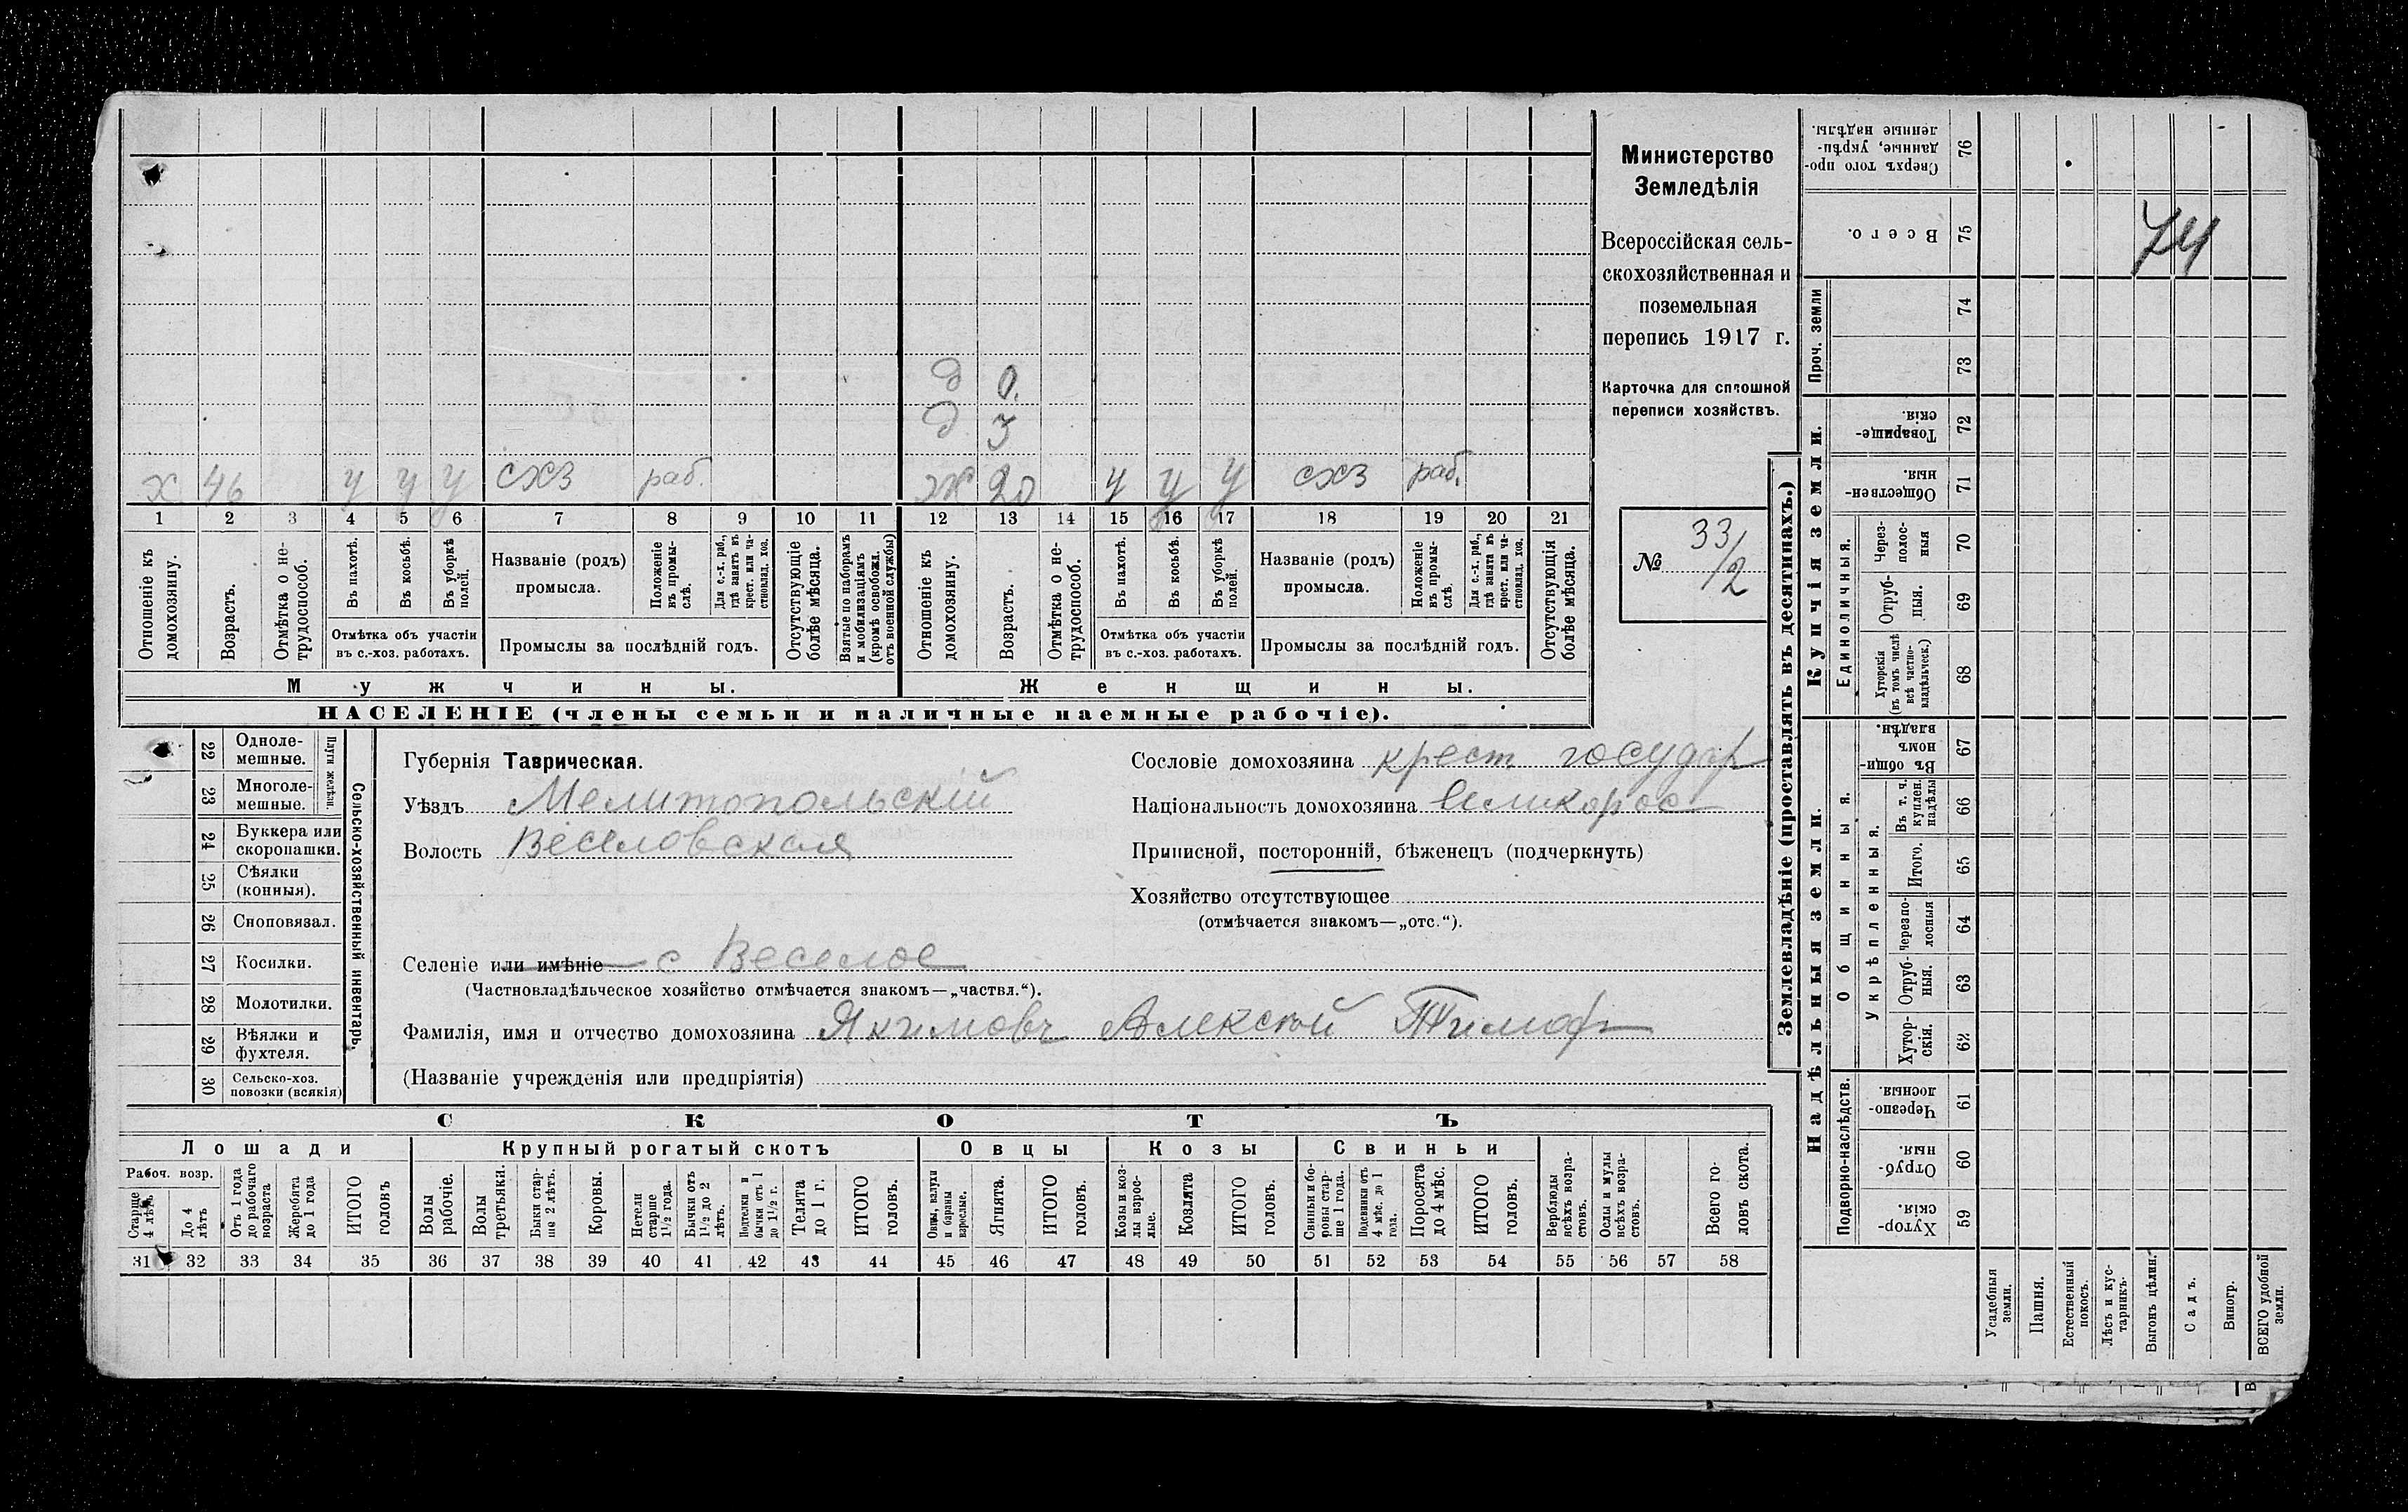 Министерство
Земледѣлія
Всероссійская сель-
скохозяйственная и
поземельная
перепись 1917 г.
Карточка для сплошной
переписи хозяйствъ.
№ 33/2
74
д 0.
д 3
х 46 у у у схз раб. ж 20 у у у схз раб.
1 2 3 4 5 6 7 8 9 10 11 12 13 14 15 16 17 18 19 20 21
Отношеніе къ домохозяину.
Возрастъ.
Отмѣтка о не-трудоспособ.
Въ пахотѣ.
Въ косьбѣ.
Въ уборкѣ полей.
Отмѣтка объ участіи
въ с.-хоз. работахъ.
Названіе (родъ)
промысла.
Положеніе въ промы-слѣ.
Для с.-х. раб., гдѣ занятъ въ крест. или ча-стновлад. хоз.
Промыслы за послѣдній годъ.
Отсутствующіе болѣе мѣсяца.
Взятые по наборамъ и мобилизаціямъ (кромѣ освобожд. отъ военной службы)
Отношеніе къ домохозяину.
Возрастъ.
Отмѣтка о не-трудоспособ.
Въ пахотѣ.
Въ косьбѣ.
Въ уборкѣ полей.
Отмѣтка объ участіи
въ с.-хоз. работахъ.
Названіе (родъ)
промысла.
Положеніе въ промы-слѣ.
Для с.-х. раб., гдѣ занята въ крест. или ча-стновлад. хоз.
Промыслы за послѣдній годъ.
Отсутствующія болѣе мѣсяца.
Мужчины.
Женщины.
НАСЕЛЕНІЕ (члены семьи и наличные наемные рабочіе).
Сельско-хозяйственный инвентарь.
Плуги желѣзн.
22 Одноле-мешные.
23 Многоле-мешные.
24 Буккера или скоропашки.
25 Сѣялки (конныя).
26 Сноповязал.
27 Косилки.
28 Молотилки.
29 Вѣялки и фухтеля.
30 Сельско-хоз. повозки (всякія)
Губернія Таврическая.
Уѣздъ Мелитопольскій
Волость Веселовская
Сословіе домохозяина крест государ
Національность домохозяина великорос
Приписной, посторонній, бѣженецъ (подчеркнуть)
Хозяйство отсутствующее
(отмѣчается знакомъ—„отс.“).
Селеніе или имѣніе с Веселое
(Частновладѣльческое хозяйство отмѣчается знакомъ—„частвл.“).
Фамилія, имя и отчество домохозяина Якимовъ Алексѣй Тимоф
(Названіе учрежденія или предпріятія)
СКОТЪ
Лошади
Крупный рогатый скотъ
Овцы
Козы
Свиньи
Рабоч. возр.
Старше 4 лѣтъ
До 4 лѣтъ
Отъ 1 года до рабочаго возраста
Жеребята до 1 года
ИТОГО головъ
Волы рабочіе.
Волы третьяки.
Быки стар-ше 2 лѣтъ.
Коровы.
Нетели старше 1½ года.
Бычки отъ 1½ до 2 лѣтъ.
Подтелки и бычки отъ 1 до 1½ г.
Телята до 1 г.
ИТОГО головъ.
Овцы, валухи и бараны взрослые.
Ягнята.
ИТОГО головъ.
Козы и коз-лы взрос-лые.
Козлята
ИТОГО головъ.
Свиньи и бо-ровы стар-ше 1 года.
Подсвинки отъ 4 мѣс. до 1 года.
Поросята до 4 мѣс.
ИТОГО головъ.
Верблюды всѣхъ возра-стовъ.
Ослы и мулы всѣхъ возра-стовъ.
Всего го-ловъ скота.
31 32 33 34 35 36 37 38 39 40 41 42 43 44 45 46 47 48 49 50 51 52 53 54 55 56 57 58
Землевладѣніе (проставлять въ десятинахъ.)
Купчія земли.
Надѣльныя земли.
Проч. земли
Единоличныя.
Общинныя.
Укрѣпленныя.
Подворно-наслѣдств.
76 Сверхъ того про-данные, укрѣп-ленные надѣлы.
75 Всего.
74
73
72 Товарище-скія.
71 Обществен-ныя.
70 Через-полос-ныя
69 Отруб-ныя.
68 Хуторскія (въ томъ числѣ всѣ частно-владѣльческ.)
67 Въ общи-номъ владѣн.
66 Въ т. ч. куплен. надѣлы
65 Итого.
64 Черезпо-лосныя
63 Отруб-ныя.
62 Хутор-скія.
61 Черезпо-лосныя.
60 Отруб-ныя.
59 Хутор-скія.
Усадебныя земли.
Пашня.
Естественный покосъ.
Лѣсъ и кус-тарникъ.
Выгонъ цѣлин.
Садъ.
Виногр.
ВСЕГО удобной земли.
В